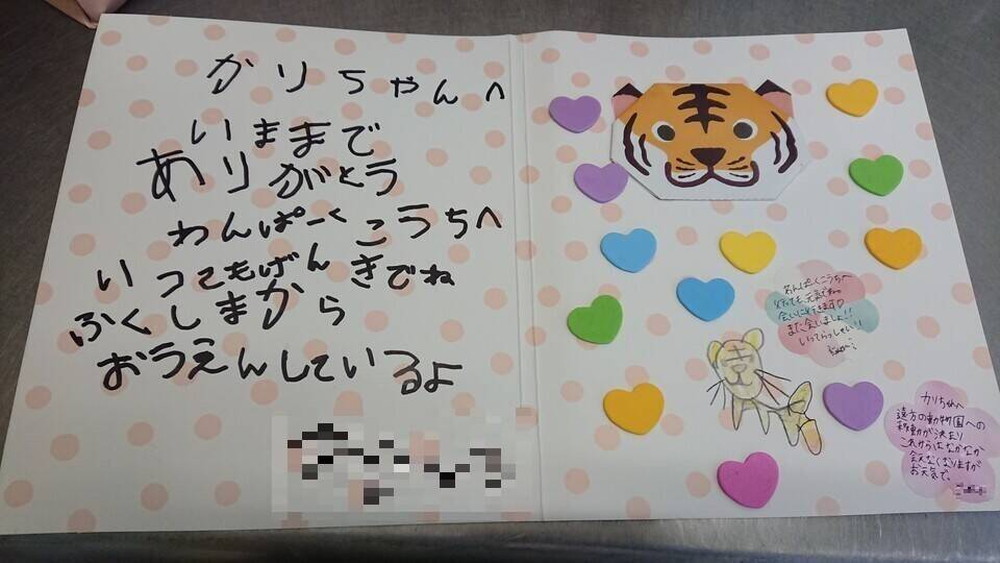 かりちゃんへ
いままで
ありがとう
わんぱーくこうちへ
いってもげんきでね
ふくしまから
おうえんしているよ
わんぱくこうちへ
行っても元気でね。
会いに行きます♡
また会いましょ!!
いってらっしゃい!!
かりちゃんへ
遠方の動物園への
移動が決まり
これからはなかなか
会えなくなりますが
お元気で。